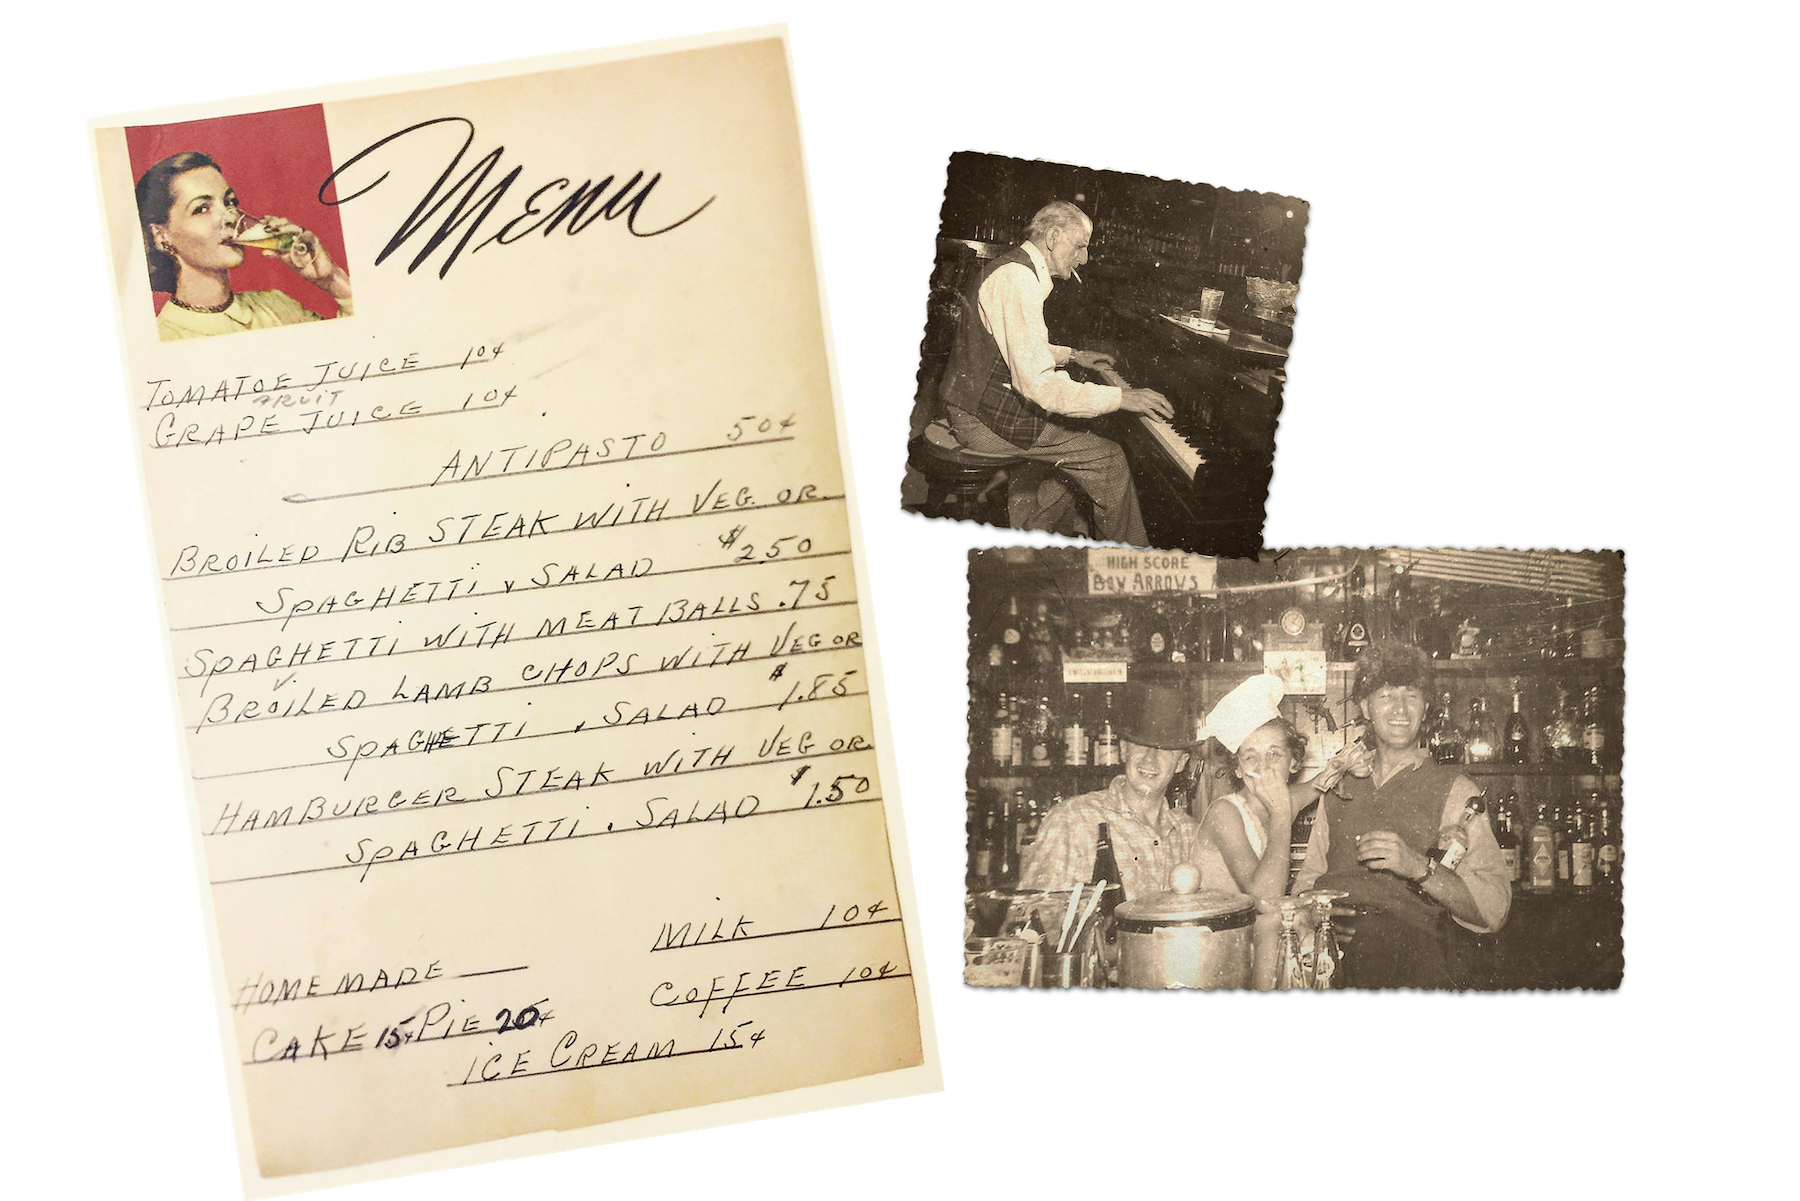 Menu
TOMATOE JUICE 10¢
FRUIT
GRAPE JUICE 10¢
ANTIPASTO 50¢
BROILED RIB STEAK WITH VEG. OR
SPAGHETTI & SALAD $2.50
SPAGHETTI WITH MEAT BALLS .75
BROILED LAMB CHOPS WITH VEG OR
SPAGHETTI , SALAD $1.85
HAMBURGER STEAK WITH VEG OR
SPAGHETTI . SALAD $1.50
MILK 10¢
HOME MADE
COFFEE 10¢
CAKE 15¢ PIE 20¢
ICE CREAM 15¢
HIGH SCORE
BOW ARROWS